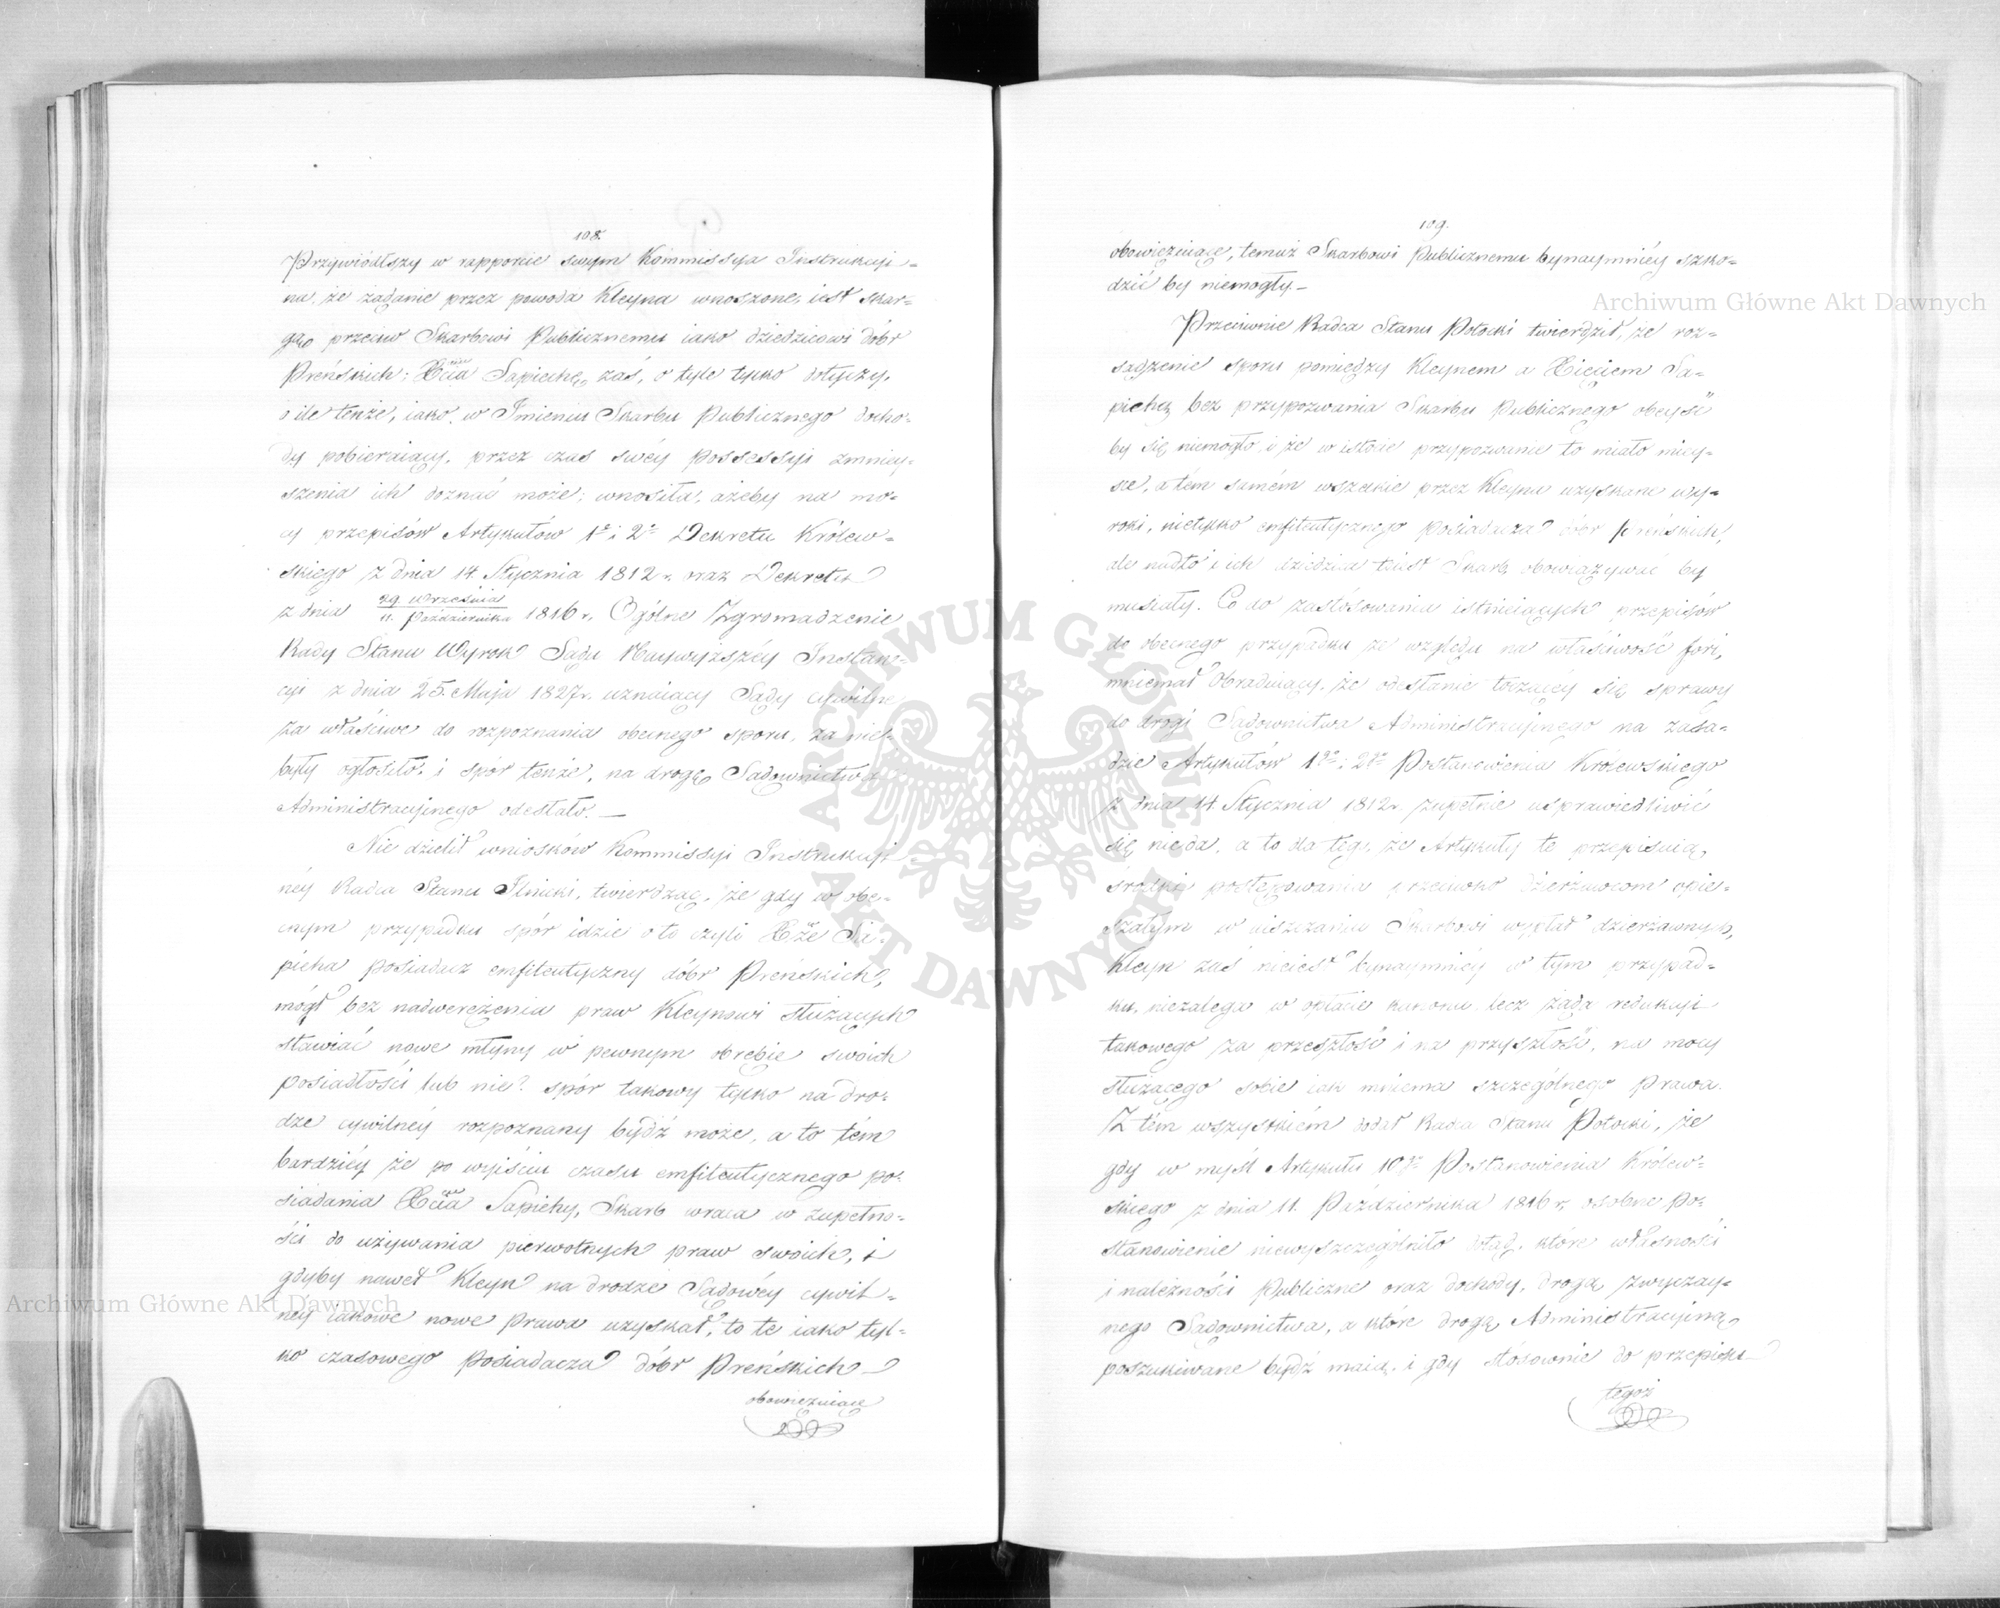 108.
Przywiódłszy w rapporcie swym Kommissya Instrukcyi-
na, że żądanie przez powoda Kleyna wnoszone, iest skar-
gą przeciw Skarbowi Publicznemu iako dziedzicowi dóbr
Preńskich; Xcia Sapiehę zaś, o tyle tylko dotyczy,
o ile tenże, iako w Imieniu Skarbu Publicznego docho-
dy pobieraiący, przez czas swéy possessyi zmniey-
szenia ich doznać może; wnosiła, ażeby na mo-
cy przepisów Artykułów 1o i 2o Dekretu Królew-
skiego z dnia 14 Stycznia 1812 r. oraz Dekretu
z dnia 29 Września / 11 Października 1816 r. Ogólne Zgromadzenie
Rady Stanu Wyrok Sądu Naywyższéy Instan-
cyi z dnia 25 Maja 1827 r. uznaiący Sądy cywilne
za właściwe do rozpoznania obecnego sporu, za nie-
były ogłosiło, i spór tenże, na drogę Sądownictwa
Administracyjnego odesłało. —
Nie dzielił wniosków Kommissyi Instrukcyi-
néy Radca Stanu Ilnicki, twierdząc, że gdy w obe-
cnym przypadku spór idzie o to czyli Xże Sa-
pieha posiadacz emfiteutyczny dóbr Preńskich,
mógł bez nadwerężenia praw Kleynowi służących
stawiać nowe młyny w pewnym obrębie swoich
posiadłości lub nie? spór takowy tylko na dro-
dze cywilnéy rozpoznany bydź może, a to tém
bardziéy że po wyjściu czasu emfiteutycznego po-
siadania Xcia Sapiehy, Skarb wraca w zupełno-
ści do używania pierwotnych praw swoich, i
gdyby nawet Kleyn na drodze Sądowéy cywil-
néy iakowe nowe prawa uzyskał, to te iako tyl-
ko czasowego posiadacza dóbr Preńskich
obowięzuiące
109.
obowięzuiące, temuż Skarbowi Publicznemu bynaymniéy szko-
dzić by niemogły. —
Przeciwnie Radca Stanu Potocki twierdził, że roz-
sądzenie sporu pomiędzy Kleynem a Xięciem Sa-
piehą bez przypozwania Skarbu Publicznego obeyść
by się niemogło, i że w istocie przypozwanie to miało miey-
sce, a tém samém wszelkie przez Kleyna uzyskane wy-
roki, nietylko emfiteutycznego posiadacza dóbr Preńskich,
ale nadto i ich dziedzica to iest Skarb, obowiązywać by
musiały. Co do zastósowania istnieiących przepisów
do obecnego przypadku ze względu na właściwość fori,
mniemał Obraduiący, że odesłanie toczącéy się sprawy
do drogi Sądownictwa Administracyjnego na zasa-
dzie Artykułów 1go i 2go Postanowienia Królewskiego
z dnia 14 Stycznia 1812 r. zupełnie usprawiedliwić
się nieda, a to dla tego, że Artykuły te przepisuią
środki postępowania przeciwko dzierżawcom opie-
szałym w uiszczaniu Skarbowi wypłat dzierżawnych,
Kleyn zaś nieiest bynaymniéy w tym przypad-
ku, niezalega w opłacie kanonu lecz żąda redukcyi
takowego za przeszłość i na przyszłość, na mocy
służącego sobie iak mniema szczególnego prawa.
Z tém wszystkiém dodał Radca Stanu Potocki, że
gdy w myśl Artykułu 10go Postanowienia Królew-
skiego z dnia 11 Października 1816 r. osobne po-
stanowienie niewyszczególniło dotąd, które własności
i należności Publiczne oraz dochody, drogą zwyczay-
nego Sądownictwa, a które drogą Administracyjną
poszukiwane bydź maią, i gdy stósownie do przepisu
tegoż
Archiwum Główne Akt Dawnych
Archiwum Główne Akt Dawnych
ARCHIWUM GŁÓWNE AKT DAWNYCH